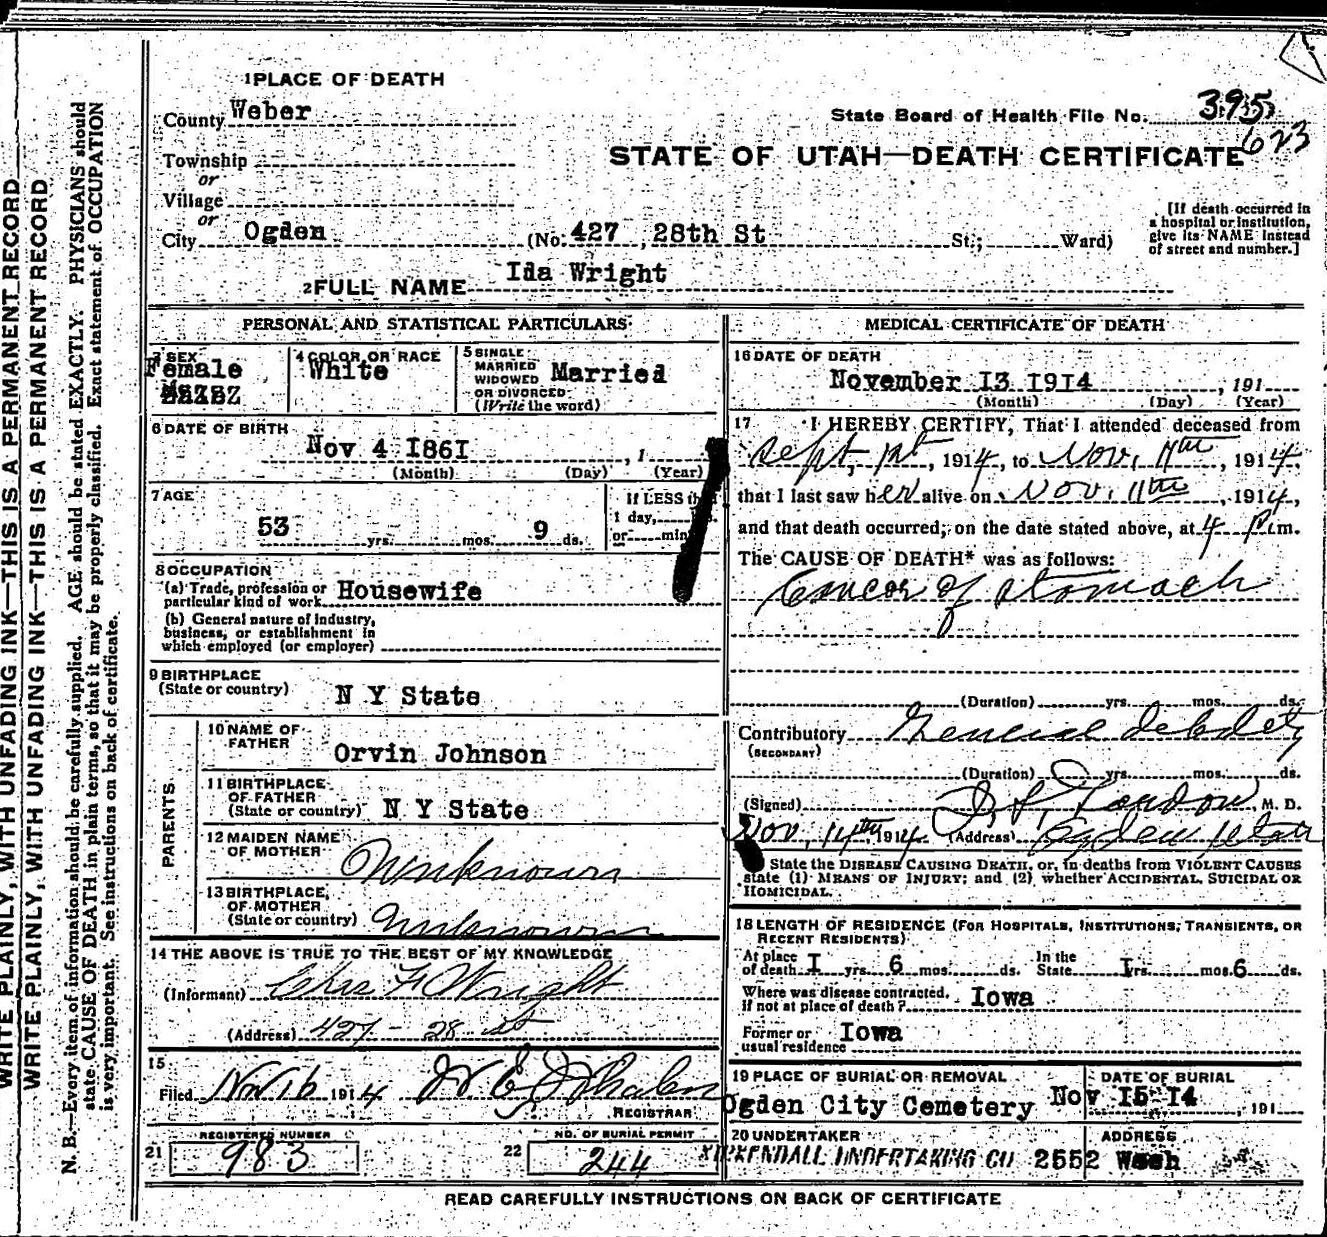 1 PLACE OF DEATH
County Weber
State Board of Health File No. 395
623
Township
or
STATE OF UTAH—DEATH CERTIFICATE
Village
or
City Ogden (No. 427 , 28th St St.; Ward)
[If death occurred in
a hospital or institution,
give its NAME instead
of street and number.]
2 FULL NAME Ida Wright
PERSONAL AND STATISTICAL PARTICULARS
3 SEX Female
4 COLOR OR RACE White
5 SINGLE
MARRIED
WIDOWED
OR DIVORCED
(Write the word) Married
6 DATE OF BIRTH
Nov 4 I86I , 1
(Month) (Day) (Year)
7 AGE
53 yrs. mos. 9 ds.
If LESS
1 day,
or min
8 OCCUPATION
(a) Trade, profession or
particular kind of work Housewife
(b) General nature of Industry,
business, or establishment in
which employed (or employer)
9 BIRTHPLACE
(State or country) N Y State
PARENTS
10 NAME OF
FATHER Orvin Johnson
11 BIRTHPLACE
OF FATHER
(State or country) N Y State
12 MAIDEN NAME
OF MOTHER Unknown
13 BIRTHPLACE
OF MOTHER
(State or country) Unknown
14 THE ABOVE IS TRUE TO THE BEST OF MY KNOWLEDGE
(Informant) Chas F Wright
(Address) 427 - 28 st
15
Filed Nov 16 1914
REGISTRAR
21 REGISTERED NUMBER
983
22 NO. OF BURIAL PERMIT
244
MEDICAL CERTIFICATE OF DEATH
16 DATE OF DEATH
November I3 I9I4 , 191
(Month) (Day) (Year)
17 I HEREBY CERTIFY, That I attended deceased from
Sept, 1st , 1914, to Nov. 11th , 1914,
that I last saw her alive on Nov. 11th , 1914,
and that death occurred, on the date stated above, at 4 P.m.
The CAUSE OF DEATH* was as follows:
Cancer of stomach
(Duration) yrs. mos. ds.
Contributory General debility
(SECONDARY)
(Duration) yrs. mos. ds.
(Signed) M. D.
Nov. 14th 1914 (Address) Ogden Utah
State the DISEASE CAUSING DEATH, or, in deaths from VIOLENT CAUSES
state (1) MEANS OF INJURY; and (2) whether ACCIDENTAL, SUICIDAL OR
HOMICIDAL.
18 LENGTH OF RESIDENCE (FOR HOSPITALS, INSTITUTIONS, TRANSIENTS, OR
RECENT RESIDENTS)
At place
of death I yrs. 6 mos. ds. In the
State I rs. mos. 6 ds.
Where was disease contracted,
if not at place of death? Iowa
Former or
usual residence Iowa
19 PLACE OF BURIAL OR REMOVAL
Ogden City Cemetery
DATE OF BURIAL
Nov I5 I4 , 191
20 UNDERTAKER
KIRKENDALL UNDERTAKING CO
ADDRESS
2552 Wash
READ CAREFULLY INSTRUCTIONS ON BACK OF CERTIFICATE
WRITE PLAINLY, WITH UNFADING INK—THIS IS A PERMANENT RECORD
WRITE PLAINLY, WITH UNFADING INK—THIS IS A PERMANENT RECORD
N. B.—Every item of information should be carefully supplied. AGE should be stated EXACTLY. PHYSICIANS should
state CAUSE OF DEATH in plain terms, so that it may be properly classified. Exact statement of OCCUPATION
is very important. See instructions on back of certificate.